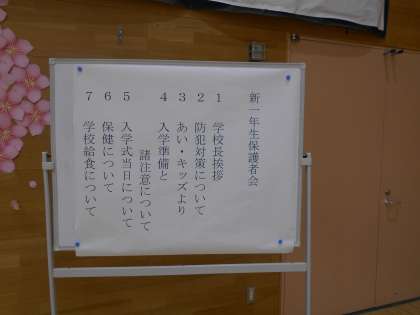 新一年生保護者会
1 学校長挨拶
2 防犯対策について
3 あい・キッズより
4 入学準備と
諸注意について
5 入学式当日について
6 保健について
7 学校給食について